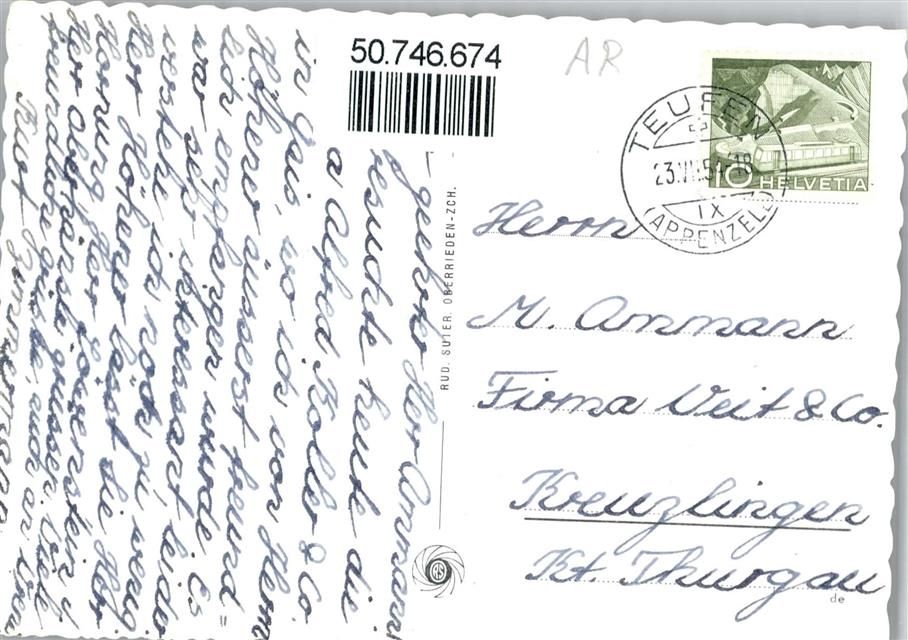 50.746.674
AR
TEUFEN
23.VII.5 -18
IX
(APPENZELL)
10 HELVETIA
Herrn
M. Ammann
Firma Veit & Co.
Kreuzlingen
Kt. Thurgau
de
RUD. SUTER, OBERRIEDEN-ZCH.
RS
geehrter Herr Ammann
besuchte heute die
a Alfred & Co.
in Gais, wo ich von Herrn
Höhener äusserst freund
lich empfangen wurde. Es
war sehr interessant leider
verstehe ich noch zu wenig
Herr Höhener lässt die Herren
Hornung, Herr
Herr grüssen. Viele
freundliche Grüsse, auch an
Rust Zimmermann